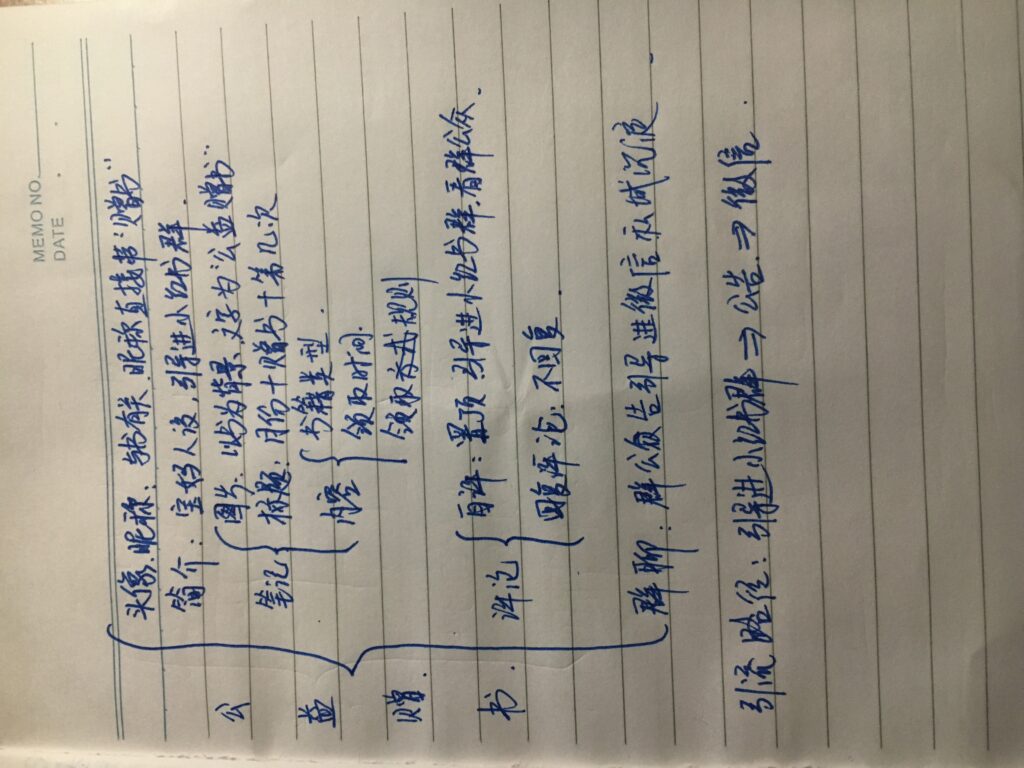 MEMO NO.
DATE . .
公益赠书.
头像、昵称: 与书有关、昵称直接带"赠书"
简介: 宝妈人设,引导进小红书群.
笔记
图片: 以书为背景、文字为"公益赠书"
标题: 月份+赠书+第几次
内容
书籍类型.
领取时间.
领取方式规则
评论
自评: 置顶 引导进小红书群、看群公众.
回复评论: 不回复.
群聊: 群公众告引导进微信私域沉淀.
引流路径: 引导进小红书群⇒公告⇒微信.